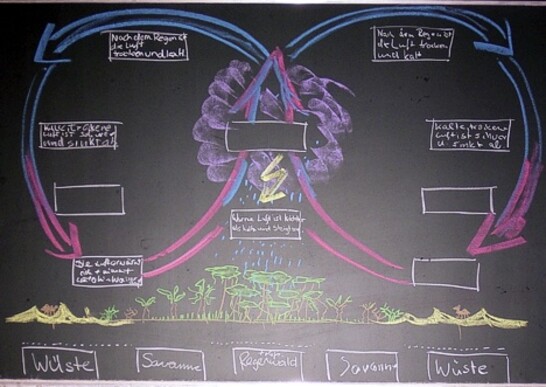 Nach dem Regen ist
die Luft
trocken und kalt
Nach dem Regen ist
die Luft trocken
und kalt
Kalte trockene
Luft ist schwer
und sinkt ab
Kalte trockene
Luft ist schwer
u sinkt ab
Warme Luft ist leichter
als kalte und steigt auf
Die Luft erwärmt
sich + nimmt
Wüste
Savanne
Regenwald
Savanne
Wüste